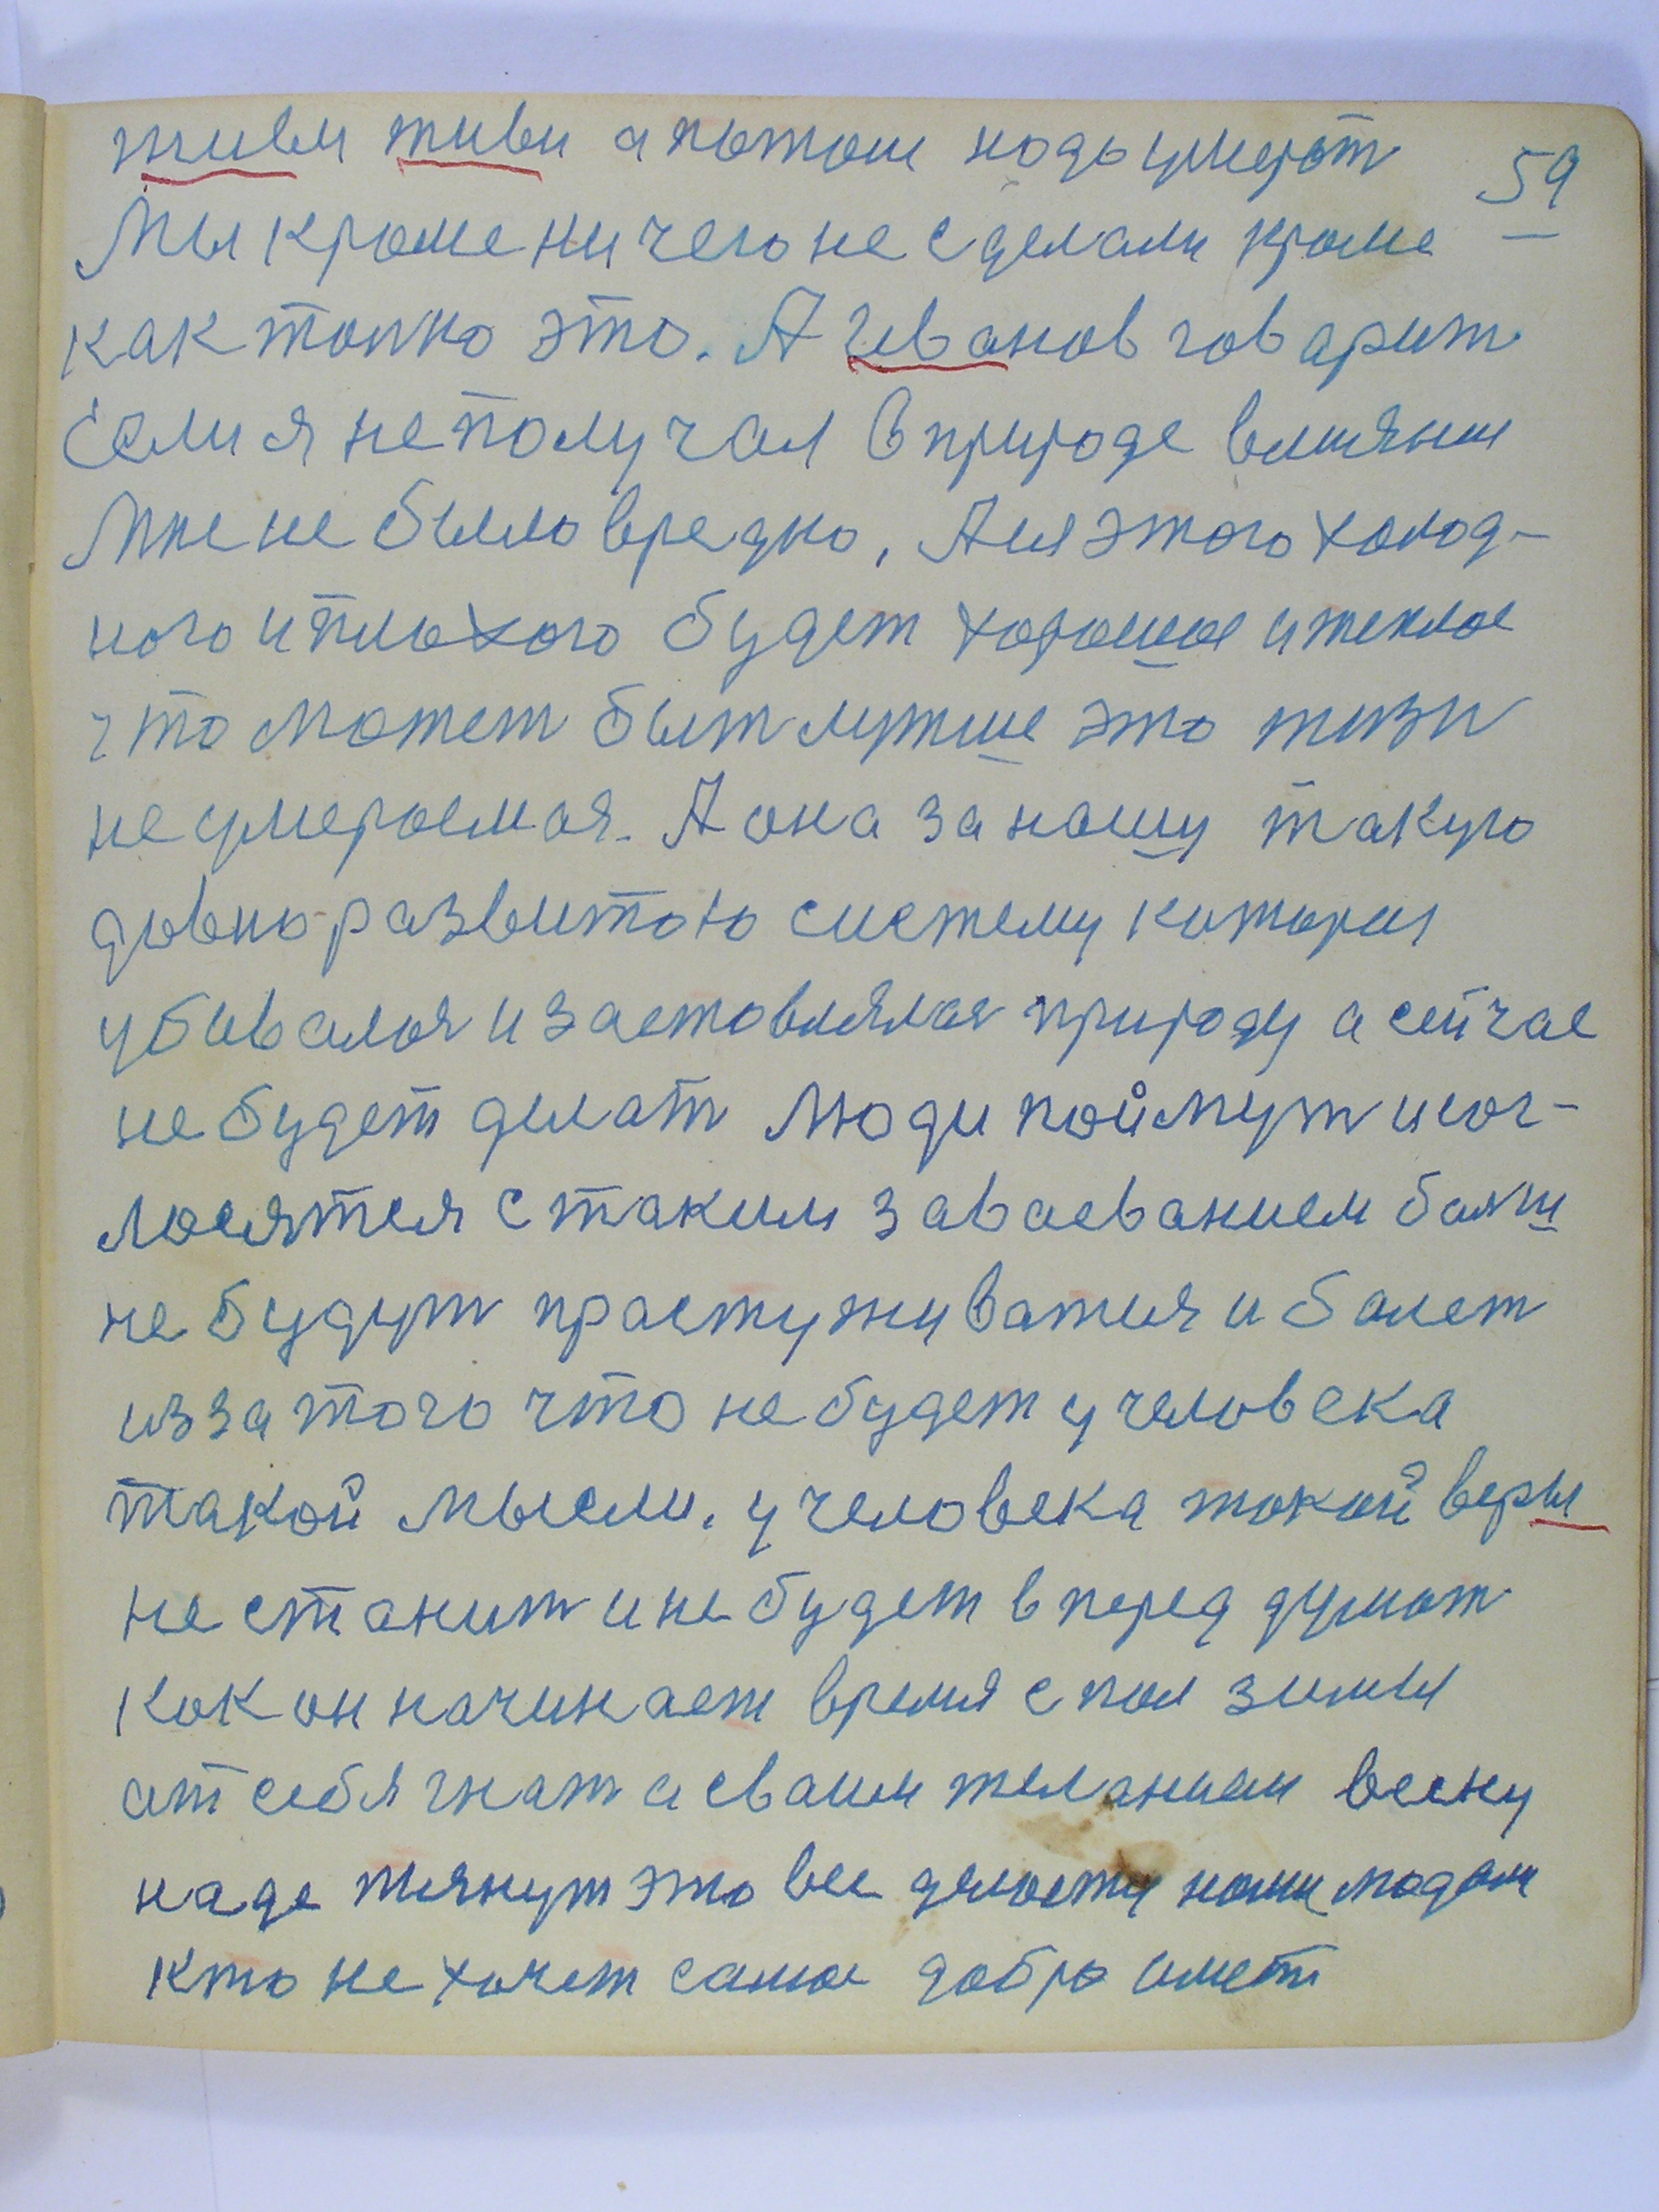 живи живи а потом надо умерат
59
Мы кроме ничего не сделали кроме
как толко это. А Иванов говарит
Если я не получал в природе влияния
Мне не было вредно, А из этого холод-
ного и плохого будет хорошое и теплое
что может быт лутше это жизн
не умераемая. А она за нашу такую
давно развитою систему которая
убивалоя и заставлялоя природу а сейчас
не будет делат Люди поймут и сог-
лосятся с таким заваеванием болш
не будут прастуживатця и болет
из за того что не будет у человека
такой мысли. у человека такой веры
не станит и не будет вперед думат
как он начинает время с пол зимы
ат себя гнат а сваим желанием весну
наде тянут это все
кто не хочет самое добро имет